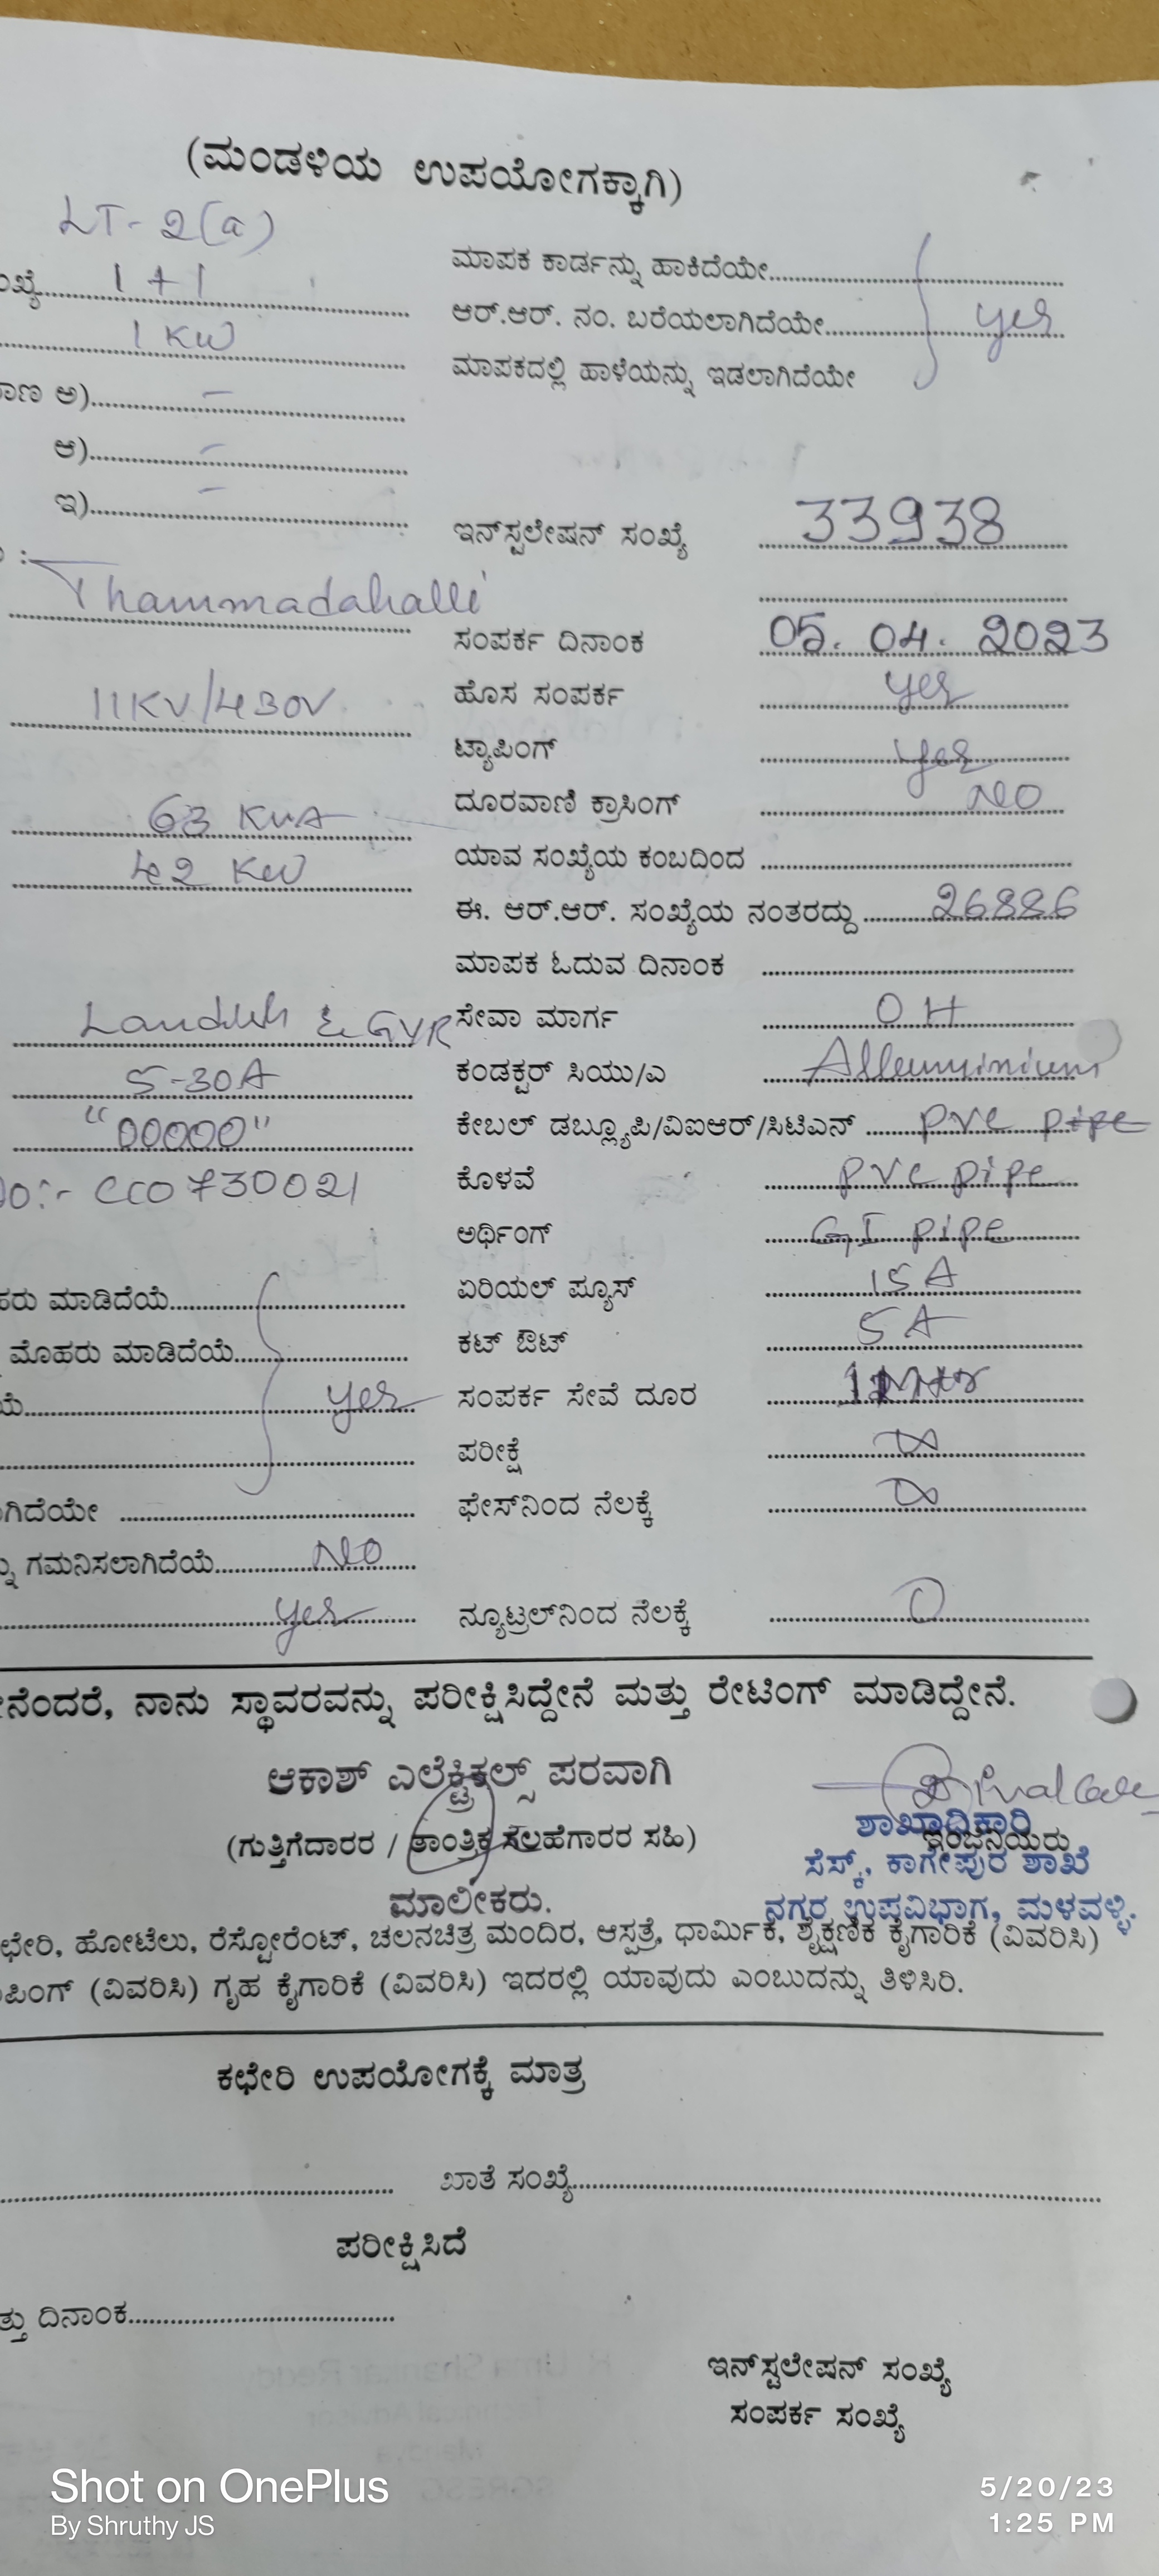 (ಮಂಡಳಿಯ ಉಪಯೋಗಕ್ಕಾಗಿ)
LT-2(a)
ಂಖ್ಯೆ 1+1
ಮಾಪಕ ಕಾರ್ಡನ್ನು ಹಾಕಿದೆಯೇ
1 KW
ಆರ್.ಆರ್. ನಂ. ಬರೆಯಲಾಗಿದೆಯೇ yes
ಮಾಪಕದಲ್ಲಿ ಹಾಳೆಯನ್ನು ಇಡಲಾಗಿದೆಯೇ
ಾಣ ಅ) -
ಆ) -
ಇ) -
ಇನ್‌ಸ್ಟಲೇಷನ್ ಸಂಖ್ಯೆ 33938
Thammadahalli
ಸಂಪರ್ಕ ದಿನಾಂಕ 05.04.2023
11KV/430V
ಹೊಸ ಸಂಪರ್ಕ yes
ಟ್ಯಾಪಿಂಗ್ yes
63 KVA
ದೂರವಾಣಿ ಕ್ರಾಸಿಂಗ್ NO
42 KW
ಯಾವ ಸಂಖ್ಯೆಯ ಕಂಬದಿಂದ
ಈ. ಆರ್.ಆರ್. ಸಂಖ್ಯೆಯ ನಂತರದ್ದು 26886
ಮಾಪಕ ಓದುವ ದಿನಾಂಕ
& GYR
ಸೇವಾ ಮಾರ್ಗ OH
5-30A
ಕಂಡಕ್ಟರ್ ಸಿಯು/ಎ Alleuminium
"00000"
ಕೇಬಲ್ ಡಬ್ಲ್ಯೂಪಿ/ವಿಐಆರ್/ಸಿಟಿಎನ್ PVC pipe
No:- CC0730021
ಕೊಳವೆ PVC pipe
ಅರ್ಥಿಂಗ್ GI pipe
ಹರು ಮಾಡಿದೆಯೆ
ಏರಿಯಲ್ ಫ್ಯೂಸ್ 15A
ಮೊಹರು ಮಾಡಿದೆಯೆ
ಕಟ್ ಔಟ್ 5A
ಯೆ yes
ಸಂಪರ್ಕ ಸೇವೆ ದೂರ
ಪರೀಕ್ಷೆ ∞
ಾಗಿದೆಯೇ
ಫೇಸ್‌ನಿಂದ ನೆಲಕ್ಕೆ ∞
ನ್ನು ಗಮನಿಸಲಾಗಿದೆಯೆ NO
yes
ನ್ಯೂಟ್ರಲ್‌ನಿಂದ ನೆಲಕ್ಕೆ 0
ನೆಂದರೆ, ನಾನು ಸ್ಥಾವರವನ್ನು ಪರೀಕ್ಷಿಸಿದ್ದೇನೆ ಮತ್ತು ರೇಟಿಂಗ್ ಮಾಡಿದ್ದೇನೆ.
ಆಕಾಶ್ ಎಲೆಕ್ಟ್ರಿಕಲ್ಸ್ ಪರವಾಗಿ
ಶಾಖಾಧಿಕಾರಿ
(ಗುತ್ತಿಗೆದಾರರ / ತಾಂತ್ರಿಕ ಸಲಹೆಗಾರರ ಸಹಿ)
ಇಂಜಿನಿಯರು
ಸೆಸ್ಕ್, ಕಾಗೇಪುರ ಶಾಖೆ
ಮಾಲೀಕರು.
ನಗರ ಉಪವಿಭಾಗ, ಮಳವಳ್ಳಿ.
ಛೇರಿ, ಹೋಟೆಲು, ರೆಸ್ಟೋರೆಂಟ್, ಚಲನಚಿತ್ರ ಮಂದಿರ, ಆಸ್ಪತ್ರೆ, ಧಾರ್ಮಿಕ, ಶೈಕ್ಷಣಿಕ ಕೈಗಾರಿಕೆ (ವಿವರಿಸಿ)
ಪಿಂಗ್ (ವಿವರಿಸಿ) ಗೃಹ ಕೈಗಾರಿಕೆ (ವಿವರಿಸಿ) ಇದರಲ್ಲಿ ಯಾವುದು ಎಂಬುದನ್ನು ತಿಳಿಸಿರಿ.
ಕಛೇರಿ ಉಪಯೋಗಕ್ಕೆ ಮಾತ್ರ
ಖಾತೆ ಸಂಖ್ಯೆ
ಪರೀಕ್ಷಿಸಿದೆ
ತ್ತು ದಿನಾಂಕ
ಇನ್‌ಸ್ಟಲೇಷನ್ ಸಂಖ್ಯೆ
ಸಂಪರ್ಕ ಸಂಖ್ಯೆ
Shot on OnePlus
By Shruthy JS
5/20/23
1:25 PM